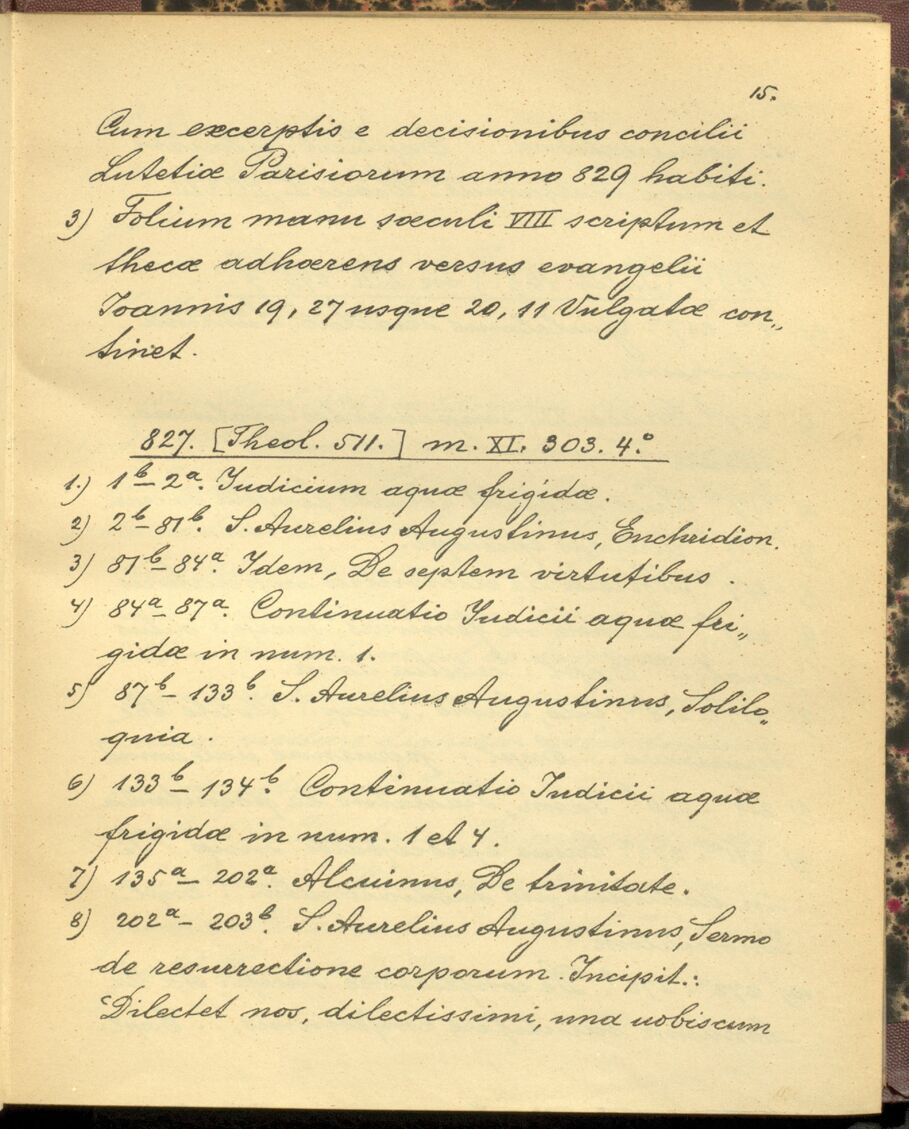 15.
Cum excerptis e decisionibus concilii
Lutetiæ Parisiorum anno 829 habiti.
3) Folium manu sæculi VIII scriptum et
thecæ adhærens versus evangelii
Joannis 19, 27 usque 20, 11 Vulgatæ con„
tinet.
827. [Theol. 511.] m. XI. 303. 4.°
1.) 1ᵇ–2ᵃ. Judicium aquæ frigidæ.
2) 2ᵇ–81ᵇ. S. Aurelius Augustinus, Enchridion.
3) 81ᵇ–84ᵃ. Idem, De septem virtutibus.
4) 84ᵃ–87ᵃ. Continuatio Judicii aquæ fri„
gidæ in num. 1.
5) 87ᵇ–133ᵇ. S. Aurelius Augustinus, Solilo„
quia.
6) 133ᵇ–134ᵇ. Continuatio Judicii aquæ
frigidæ in num. 1 et 4.
7) 135ᵃ–202ᵃ. Alcuinus, De trinitate.
8) 202ᵃ–203ᵇ. S. Aurelius Augustinus, Sermo
de resurrectione corporum. Incipit.:
‘Dilectet nos, dilectissimi, una uobiscum